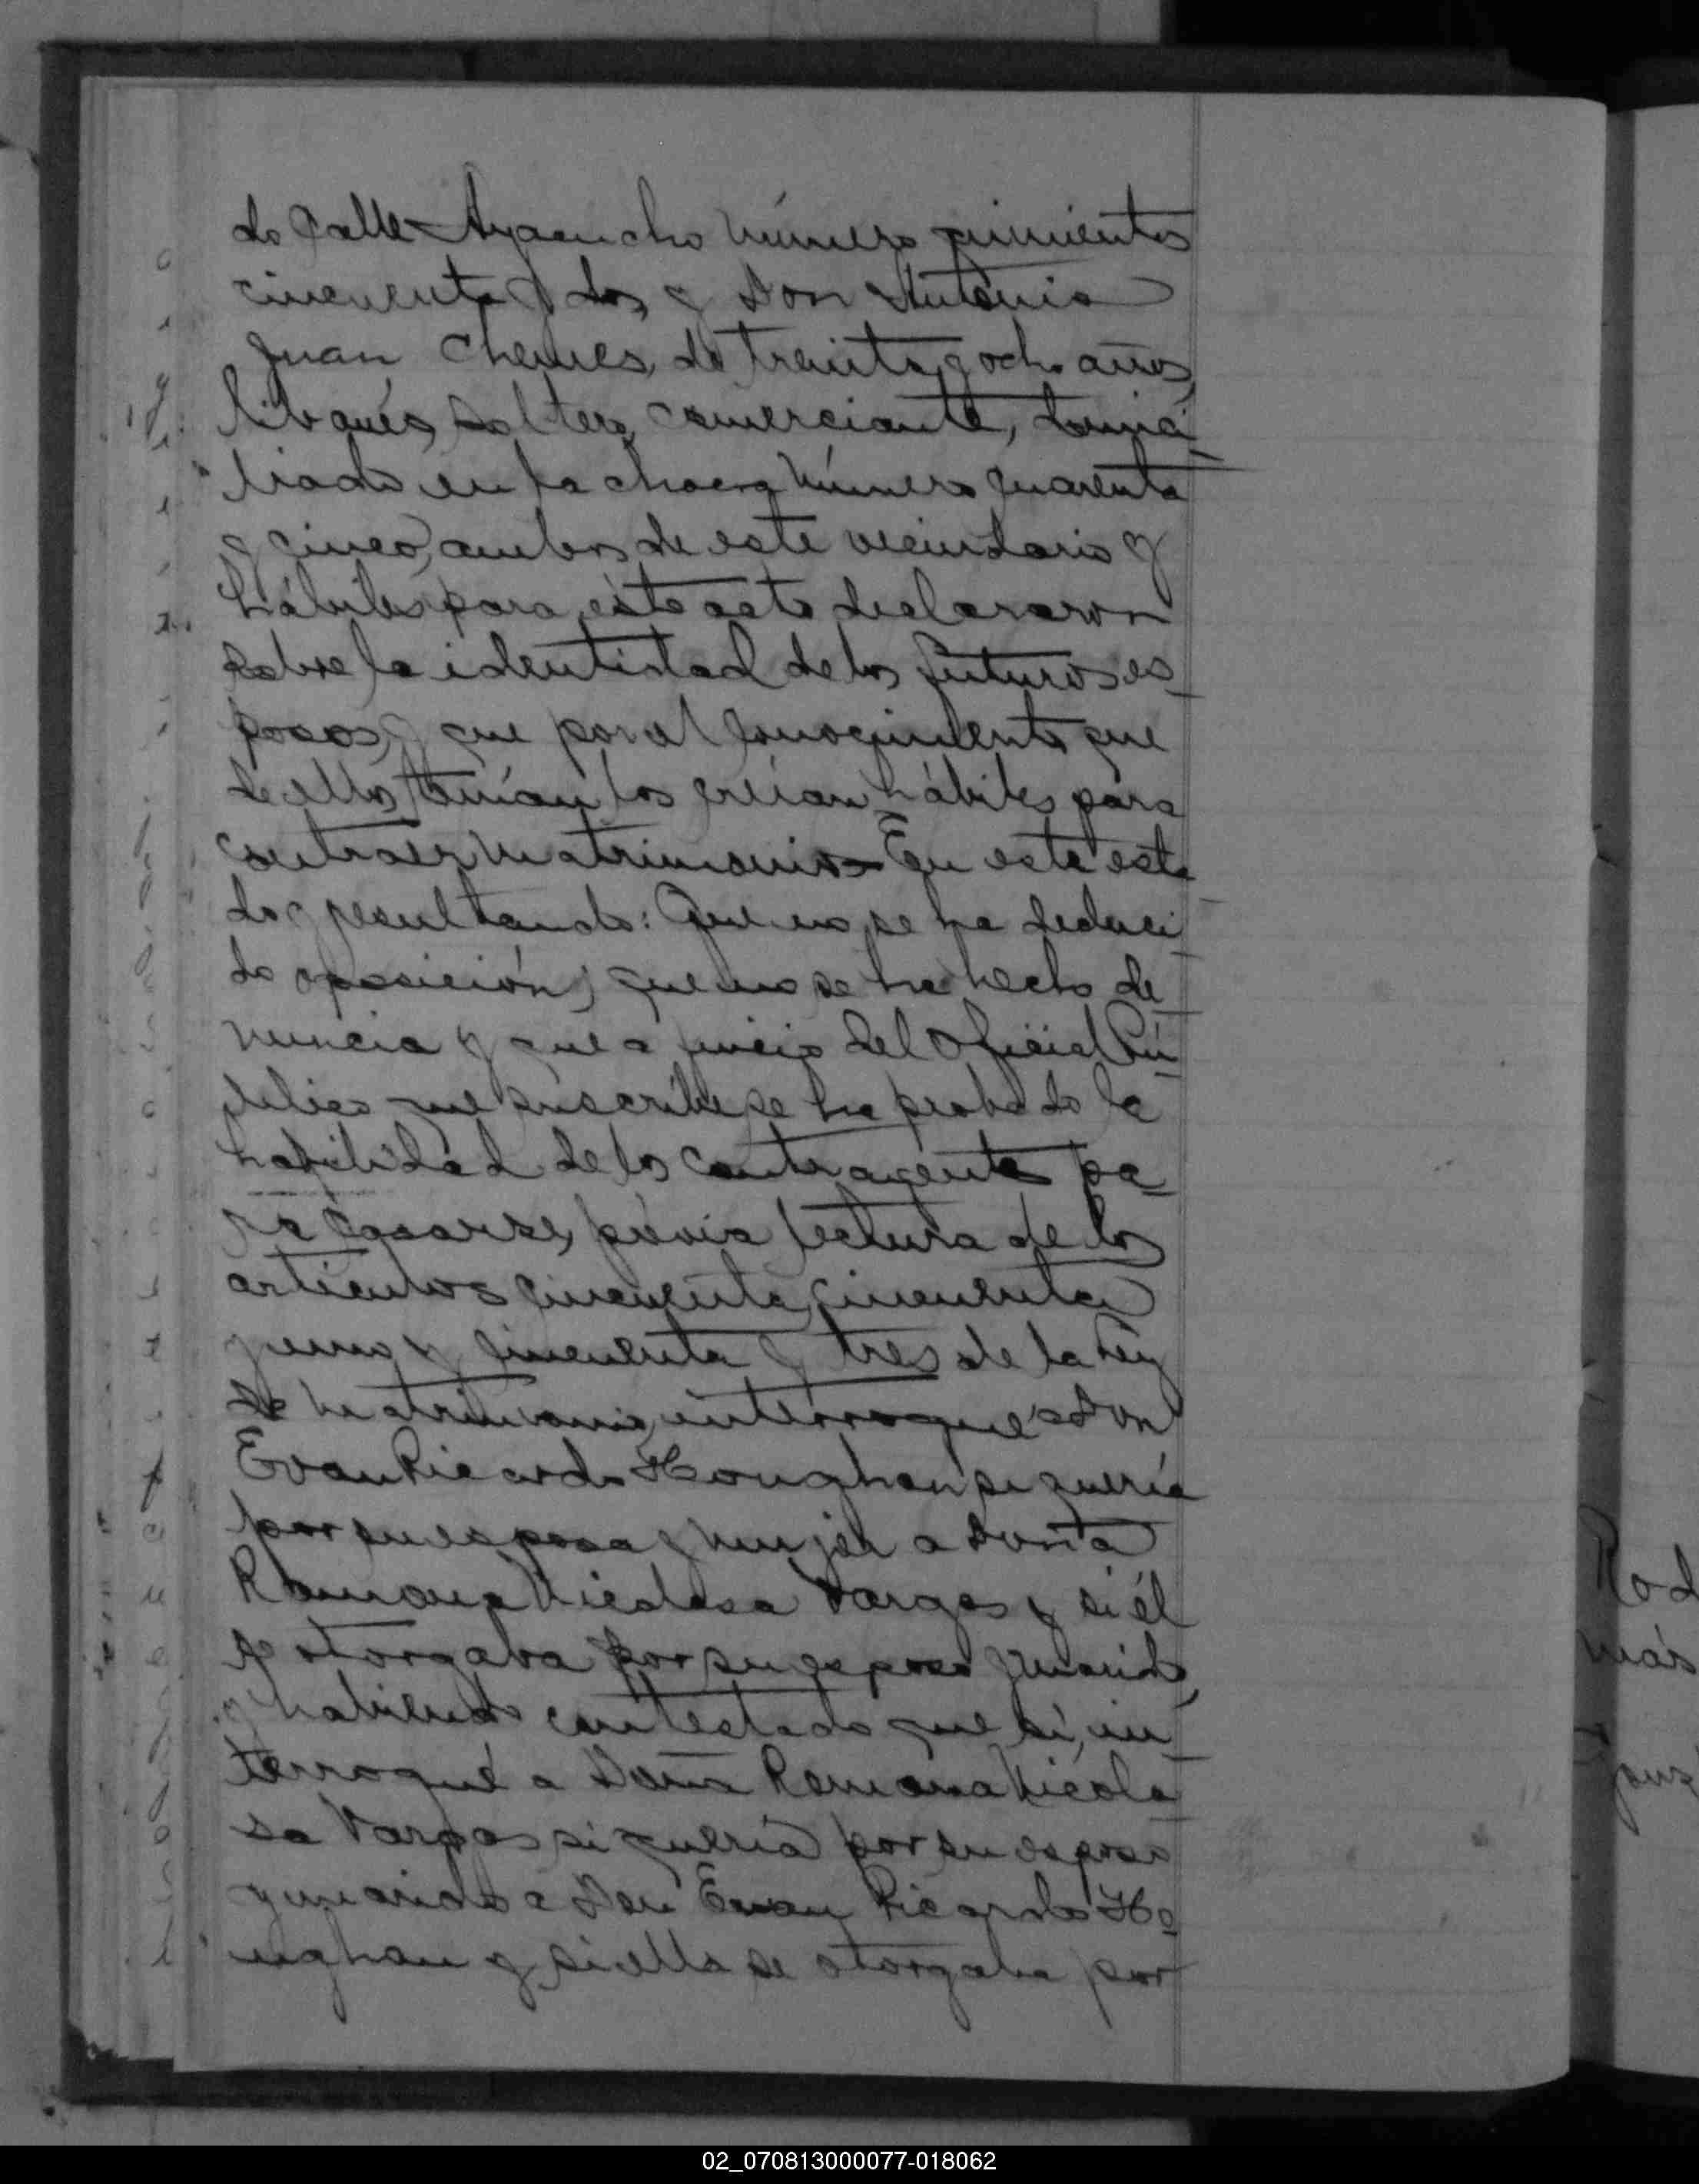 do calle Ayacucho número quinientos
cincuenta y dos, y Don Antonio
Juan Chemes, de treinta y ocho años,
libanés, soltero, comerciante, domici-
liado en la chacra número cuarenta
y cinco, ambos de este vecindario y
hábiles para éste acto declararon
sobre la identidad de los futuros es-
posos, y que por el conocimiento que
de ellos tenían los creían hábiles para
contraer matrimonio - En este esta-
do y resultando: Que no se ha deduci-
do oposición; que no se ha hecho de-
nuncia y que a juicio del Oficial Pú-
blico que suscribe se ha probado la
habilidad de los contrayentes pa-
ra casarse, prévia lectura de los
artículos cincuenta, cincuenta
y uno y cincuenta y tres de la Ley
de matrimonio, interrogué a Don
Evan Ricardo Houghan si quería
por su esposa y mujer a Doña
Ramona Nicolasa Vargas y si él
se otorgaba por su esposo y marido,
y habiendo contestado que sí, in-
terrogué a Doña Ramona Nicola-
sa Vargas si quería por su esposo
y marido a Don Evan Ricardo Ho-
ughan y si ella se otorgaba por
Rod
más
02_070813000077-018062